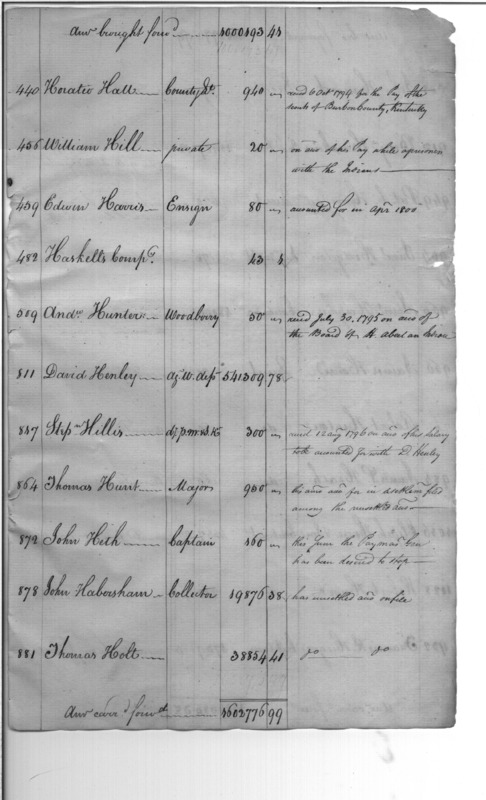 Amt brought forwd 1000193
440 Horatio Hall County Lt. 940 recd 6 Octr 1794 for the Pay of the
scouts of Burbon County, Kentucky
456 William Hill private 20 on acc of his Pay while a prisoner
with the Indians
459 Edwin Harris Ensign 80 accounted for in Apr 1800
482 Haskells Compy. 43 4
509 Andw Hunter Woodberry 50 recd July 30. 1795 on acc of
the Board of
811 David Henley Ag. W. dept 541309 78
847 Stepn Hillis 300 recd 12 Aug 1796 on acc of his Salary
to be accounted for with D. Henley
864 Thomas Hunt Major 950
among the unsettled accs
872 John Heth Captain 460 this Sum the Paymas Gen
has been desired to stop
878 John Habersham Collector 19876 38 has unsettled accs on file
881 Thomas Holt 38854 41 Do Do
Amt carrd forwd 1602776 99